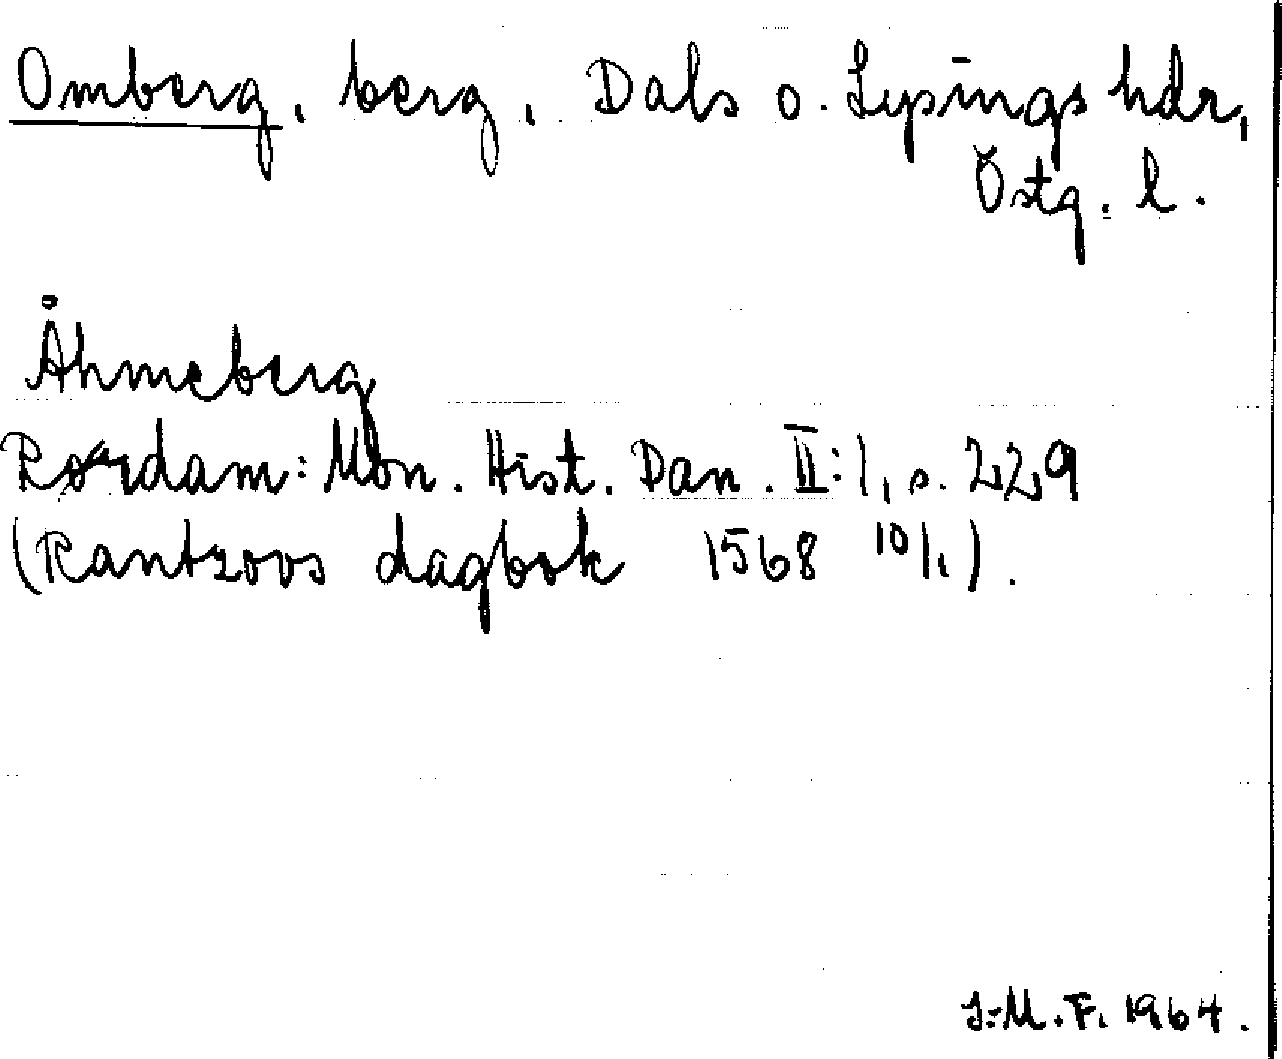 Omberg, berg, Dals o. Lysings hdr,
Östg. l.
Åhmeberg
Rørdam: Mon. Hist. Dan. II:1, s. 229
(Rantzovs dagbok 1568 10/1).
J:M.F. 1964.